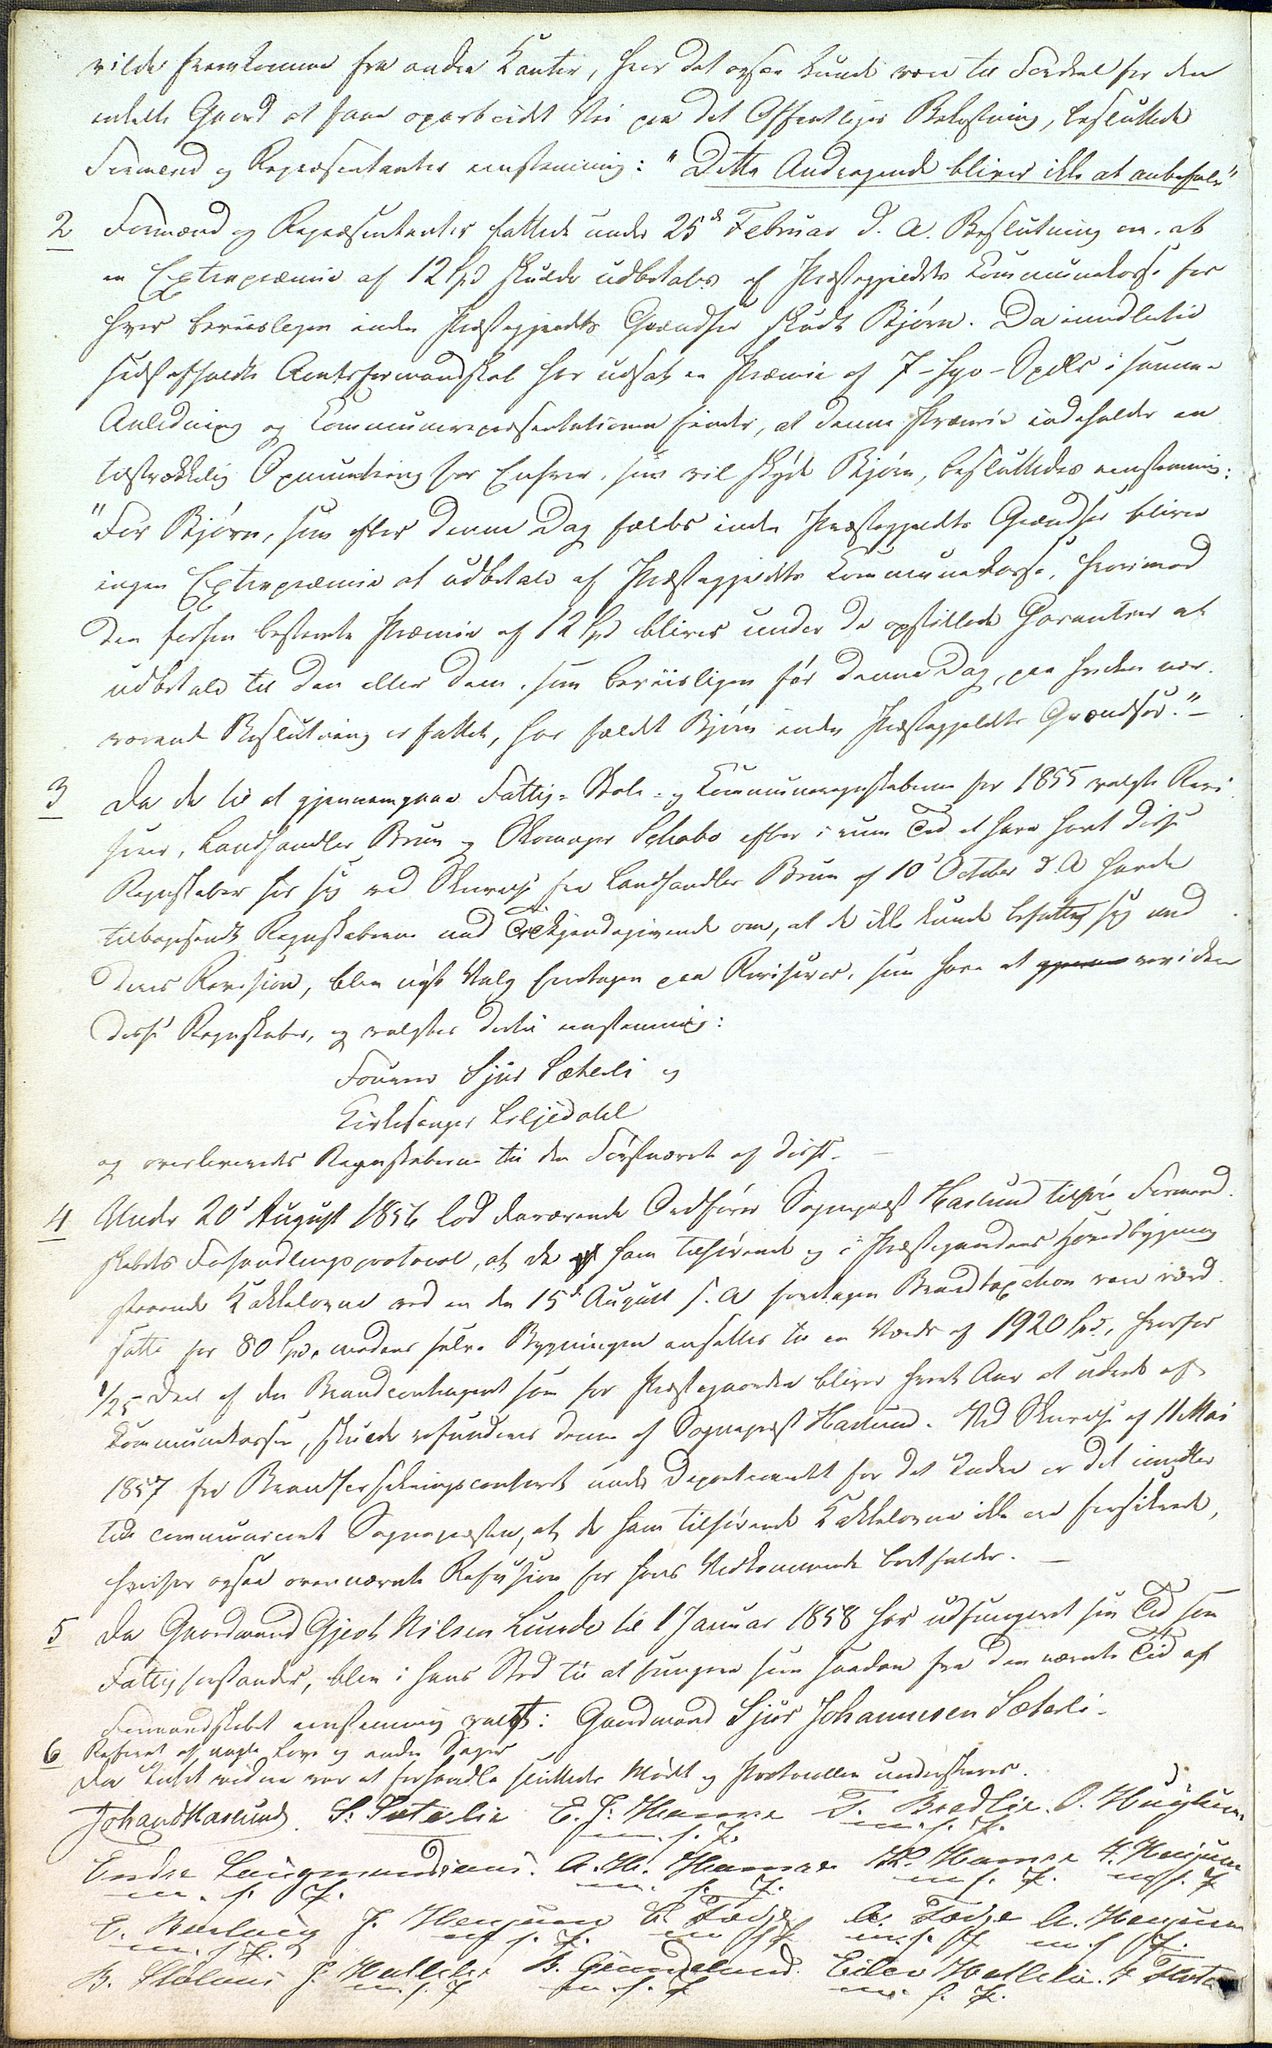 vilde fremkomme fra andre Kanter, hvor det ogsaa kunde være til Fordeel for den
enkelte Gaard at faae oparbeidet Vei paa det Offentliges Bekostning, besluttede
Formænd og Repræsentanter eenstemmig: "Dette Andragende bliver ikke at anbefale"
2 Formænd og Repræsentanter fattede under 25de Februar d. A. Beslutning om, at
en Extrapræmie af 12 Spd skulde udbetales af Præstegjeldets Kommunekasse for
hver beviisligen inden Præstegjeldets Grændser skudt Bjørn. Da imidlertid
sidstafholdte Amtsformandskab har udsat en Præmie af 7 - syv - Spdlr i samme
Anledning og Kommunerepræsentationen finder, at denne Præmie indeholder en
tilstrækkelig Opmuntring for Enhver, som vil skyde Bjørn, besluttedes eenstemmig:
"For Bjørn, som efter denne Dag fældes inden Præstegjeldets Grændser bliver
ingen Extrapræmie at udbetale af Præstegjeldets Kommunekasse, hvorimod
den forhen bestemte Præmie af 12 Spd bliver under de opstillede Garantier at
udbetale til den eller dem, som beviisligen før denne Dag, paa hvilken nær-
værende Beslutning er fattet, har fældet Bjørn inden Præstegjeldets Grændser." -
3 Da de til at gjennemgaae Fattig- Skole- og Kommuneregnskaberne for 1855 valgte Revi
sorer, Landhandler Brun og Skomager Schabo efter i rum Tid at have havt disse
Regnskaber hos sig ved Skrivelse fra Landhandler Brun af 10de October d. A havde
tilbagesendt Regnskaberne med Tilkjendegivende om, at de ikke kunde befatte sig med
deres Revision, blev nyt Valg foretagen paa Revisorer, som have at revidere
disse Regnskaber, og valgtes dertil eenstemmig:
Sjur Sæterli og
Kirkesanger Liljedahl
og overleveredes Regnskaberne til den Førstnævnte af disse. -
4 Under 20de August 1856 lod daværende Ordfører Sognepræst Haslund tilføre Formand-
skabets Forhandlingsprotocol, at de ham tilhørende og i Præstegaardens Hovedbygning
staaende Kakkelovne ved en den 15de August s. A foretagen Brandtaxation vare værd-
satte for 80 Spd, medens selve Bygningen ansattes til en Værdi af 1920 Spd, hvorfor
1/25 - Deel af den Brandcontingent som for Præstegaarden bliver hvert Aar at udrede af
Kommunekassen, skulde refunderes denne af Sognepræst Haslund. Ved Skrivelse af 11 Mai
1857 fra Brandforsikringscontoret under Departementet for det Indre er det imidler
tid communiceret Sognepræsten, at de ham tilhørende Kakkelovne ikke ere forsikrede,
hvorfor ogsaa ovennævnte Refusion for hans Vedkommende bortfalder. -
5 Da Gaardmand Gjert Nilsen Lunde til 1 Januar 1858 har udfungeret sin Tid som
Fattigforstander, blev i hans Sted til at fungere som saadan fra den nævnte Tid af
Formandskabet eenstemmig valgt: Gaardmand Sjur Johannesen Sæterli. -
6 Referat af nogle Love og andre Sager
Da Intet videre var at forhandle sluttedes Mødet og Protocollen underskreves.
Johan Haslund. S. Sæterlie E. J. Hamre T. Bredlie. O. Huglum
m. f. P. m. f. P.
Endre Laugmandsens. A. H. Hamre K. Hamre H. Henjum
m. f. P. m. f. P. m f. P. m f. P
E. J. Henjum E. Fadze A. Fadze A. Henjum
m. f. P. m f. P. m f P m. f. P m. f P.
B. Stølens J. Hatlelie B. Grindelund. Eilev Hatlelie.
m. f. P m. f. P m. f. P.